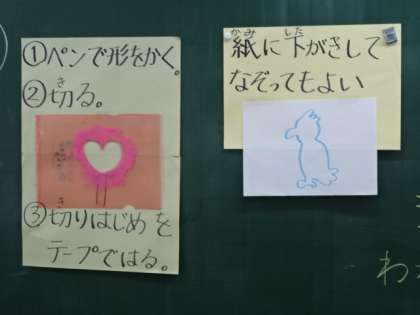 ①ペンで形をかく。
②切る。
③切りはじめを
テープではる。
紙に下がきして
なぞってもよい
わ